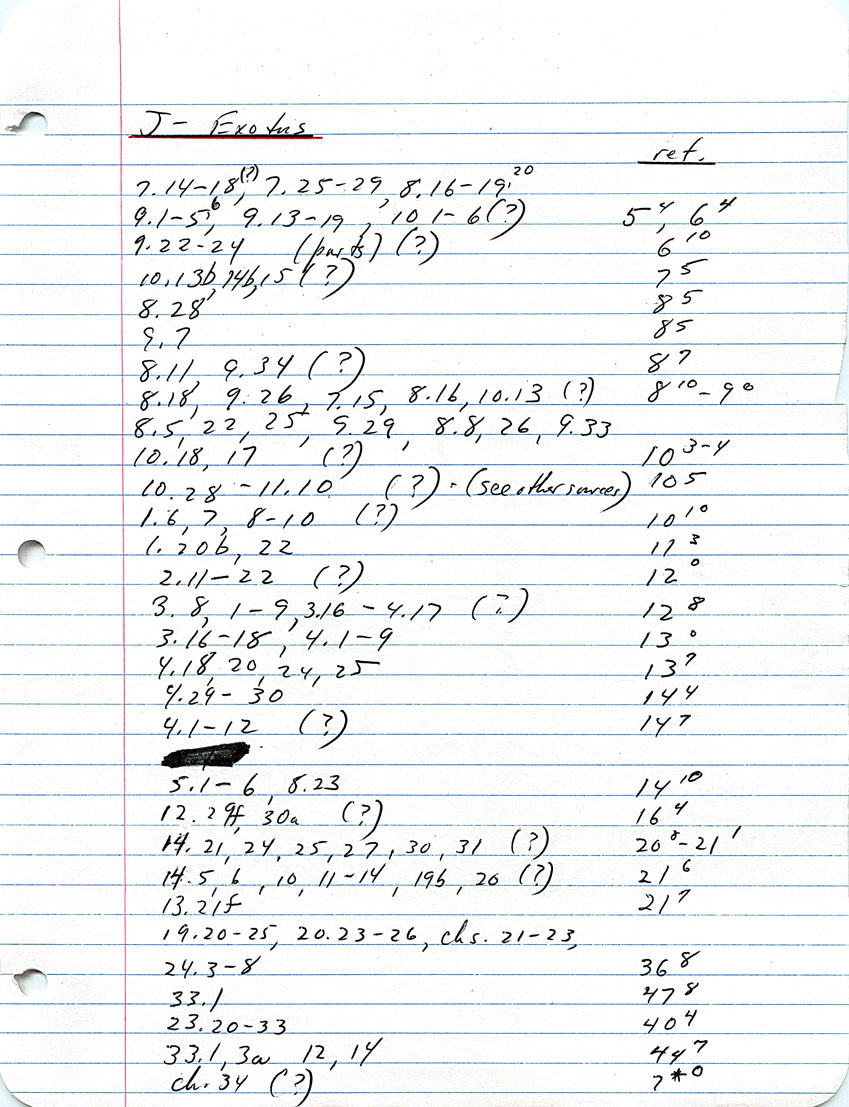 J – Exodus
ref.
7.14–18(?), 7.25–29, 8.16–19, 20
9.1–5, 6, 9.13–19, 10.1–6 (?) 5⁴, 6⁴
9.22–24 (parts) (?) 6¹⁰
10.13b, 14b, 15 (?) 7⁵
8.28 8⁵
9.7 8⁵
8.11, 9.34 (?) 8⁷
8.18, 9.26, 7.15, 8.16, 10.13 (?) 8¹⁰–9⁰
8.5, 22, 25, 9.29, 8.8, 26, 9.33
10.18, 17 (?) 10³⁻⁴
10.28 – 11.10 (?) - (see other sources) 10⁵
1.6, 7, 8–10 (?) 10¹⁰
1.20b, 22 11³
2.11–22 (?) 12⁰
3.8, 1–9, 3.16 – 4.17 (?) 12⁸
3.16–18, 4.1–9 13⁰
4.18, 20, 24, 25 13⁷
4.29– 30 14⁴
4.1–12 (?) 14⁷
5.1– 6, 8.23 14¹⁰
12.29f, 30a (?) 16⁴
14.21, 24, 25, 27, 30, 31 (?) 20⁸–21¹
14.5, 6, 10, 11–14, 19b, 20 (?) 21⁶
13.21f 21⁷
19.20–25, 20.23–26, chs. 21–23,
24.3–8 36⁸
33.1 47⁸
23.20–33 40⁴
33.1, 3a 12, 14 44⁷
ch. 34 (?) ?*⁰